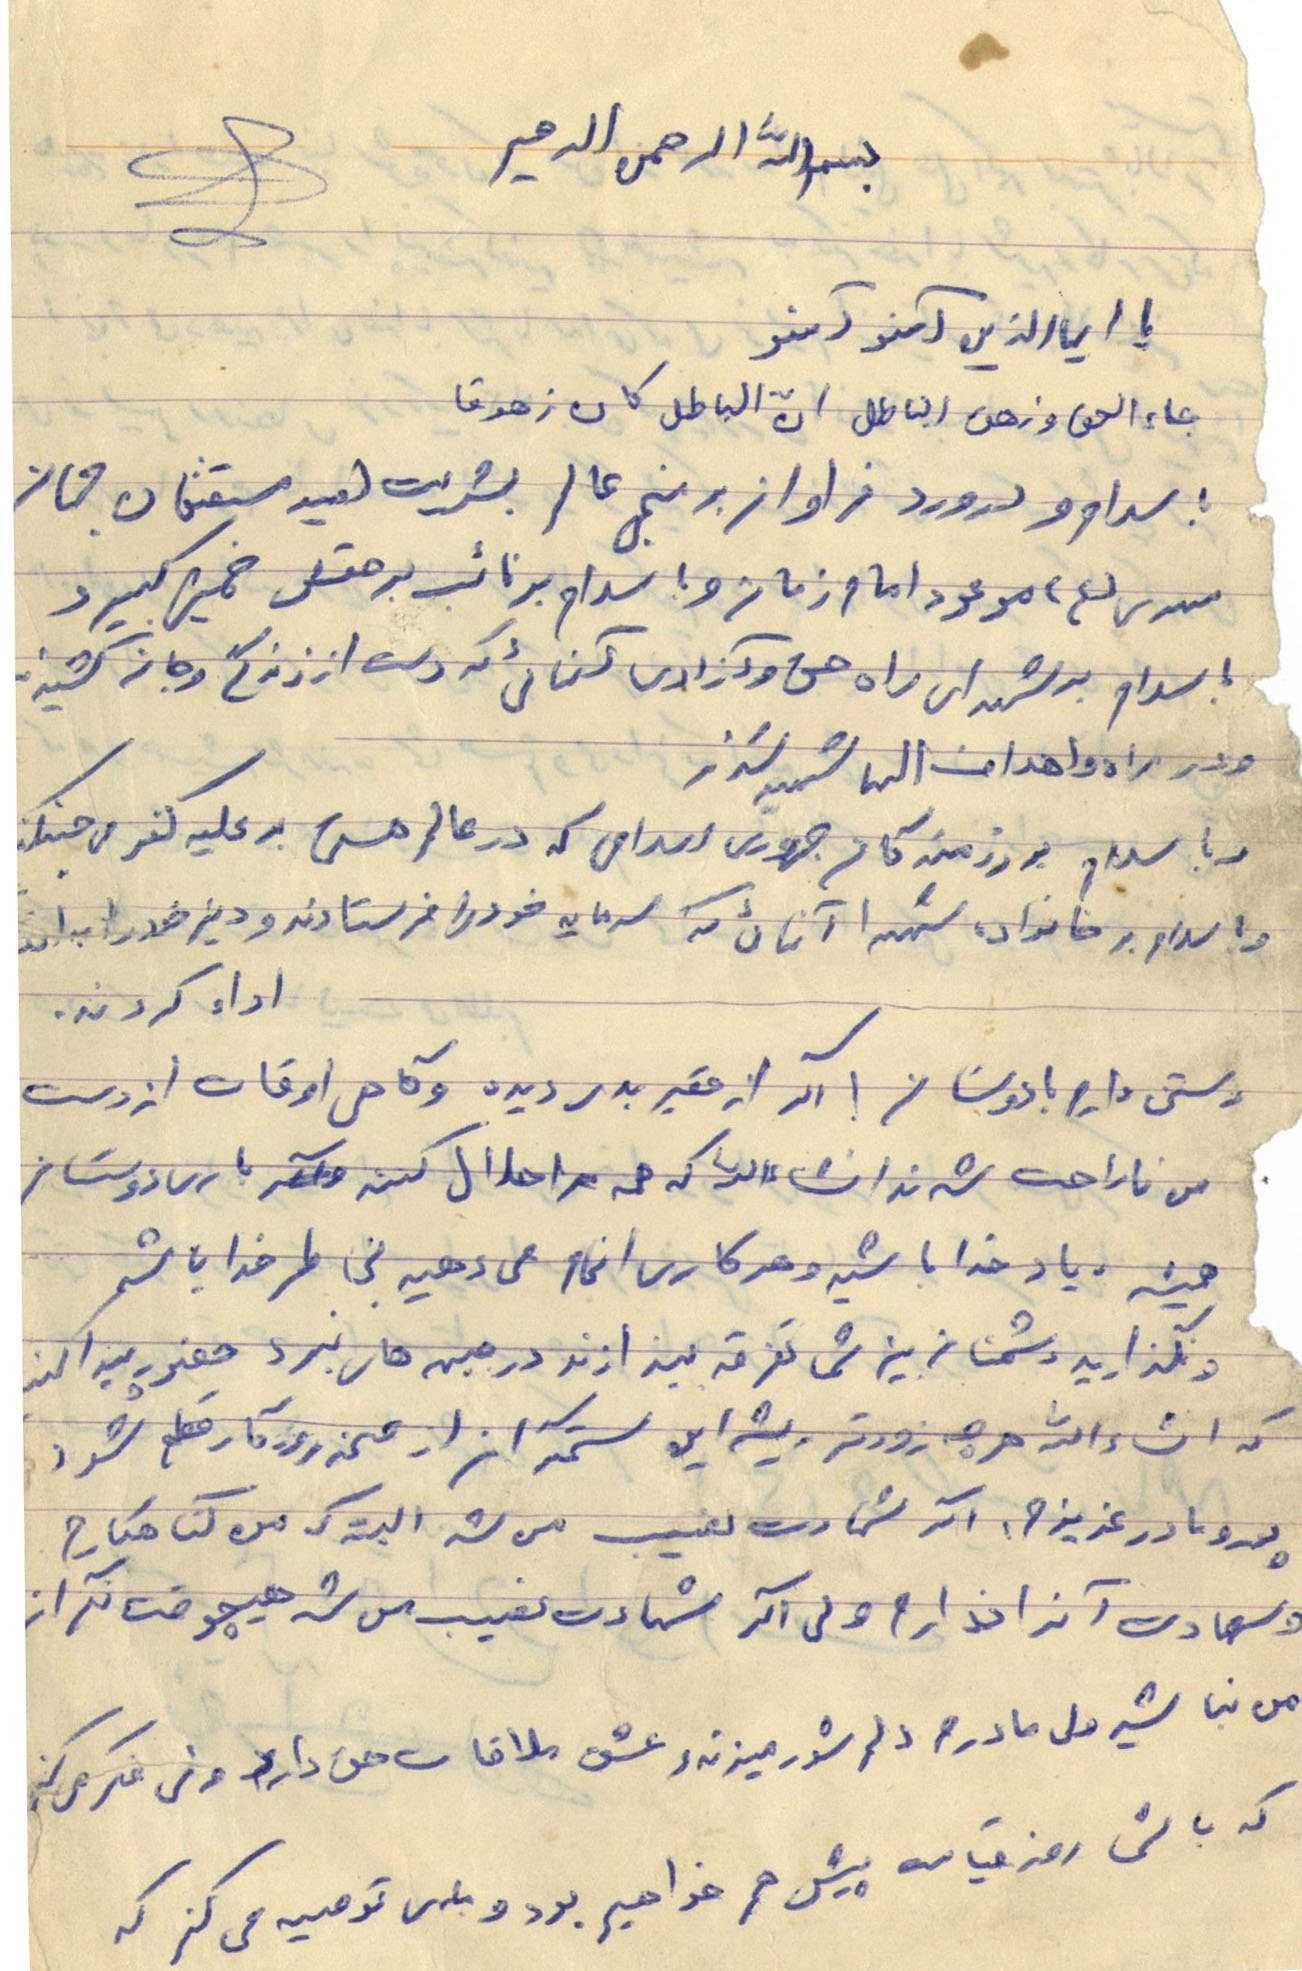 بسم الله الرحمن الرحیم
یا ایها الذین آمنو آمنو
جاء الحق و زهق الباطل انّ الباطل کان زهوقا
با سلام و درورد فراوان بر منجی عالم بشریت امید مستضعفان جهان
مهدی (ع) موعود امام زمان و با سلام بر نائب بر حقش خمینی کبیر و
با سلام بر شهدای راه حق و آزادی آنهائی که دست از زندگی و جان کشیدند
و در راه و اهداف الهی شهید شدند
و با سلام بر رزمندگان جمهوری اسلامی که در عالم هستی بر علیه کفر می جنگند
و با سلام بر خانواده شهدا آنهائی که سرمایه خود را فرستادند و دین خود را به
اداء کردند.
سخنی دارم با دوستان ! اگر از حقیر بدی دیده و گاهی اوقات از دست
من ناراحت شدند انشاءالله که همه مرا حلال کنند باری دوستان
همیشه بیاد خدا باشید و هر کاری انجام می دهید بخاطر خدا باشد
و نگذارید دشمنان بین شما تفرقه بیندازند در جبهه های نبرد حضور پیدا کنید
که انشاءالله هر چه زودتر ریشه این ستمگران از صحنه روزگار قطع شود
پدر و مادر عزیزم، اگر شهادت نصیب من شد البته که من گناهکارم
و سعادت آنرا ندارم ولی اگر شهادت نصیب من شد هیچوقت نگران
من نباشید ولی مادرم دلم شور میزند و عشق ملاقات حق دارم ولی فکر می کنم
که با شما روز قیامت پیش هم خواهیم بود و توصیه می کنم که